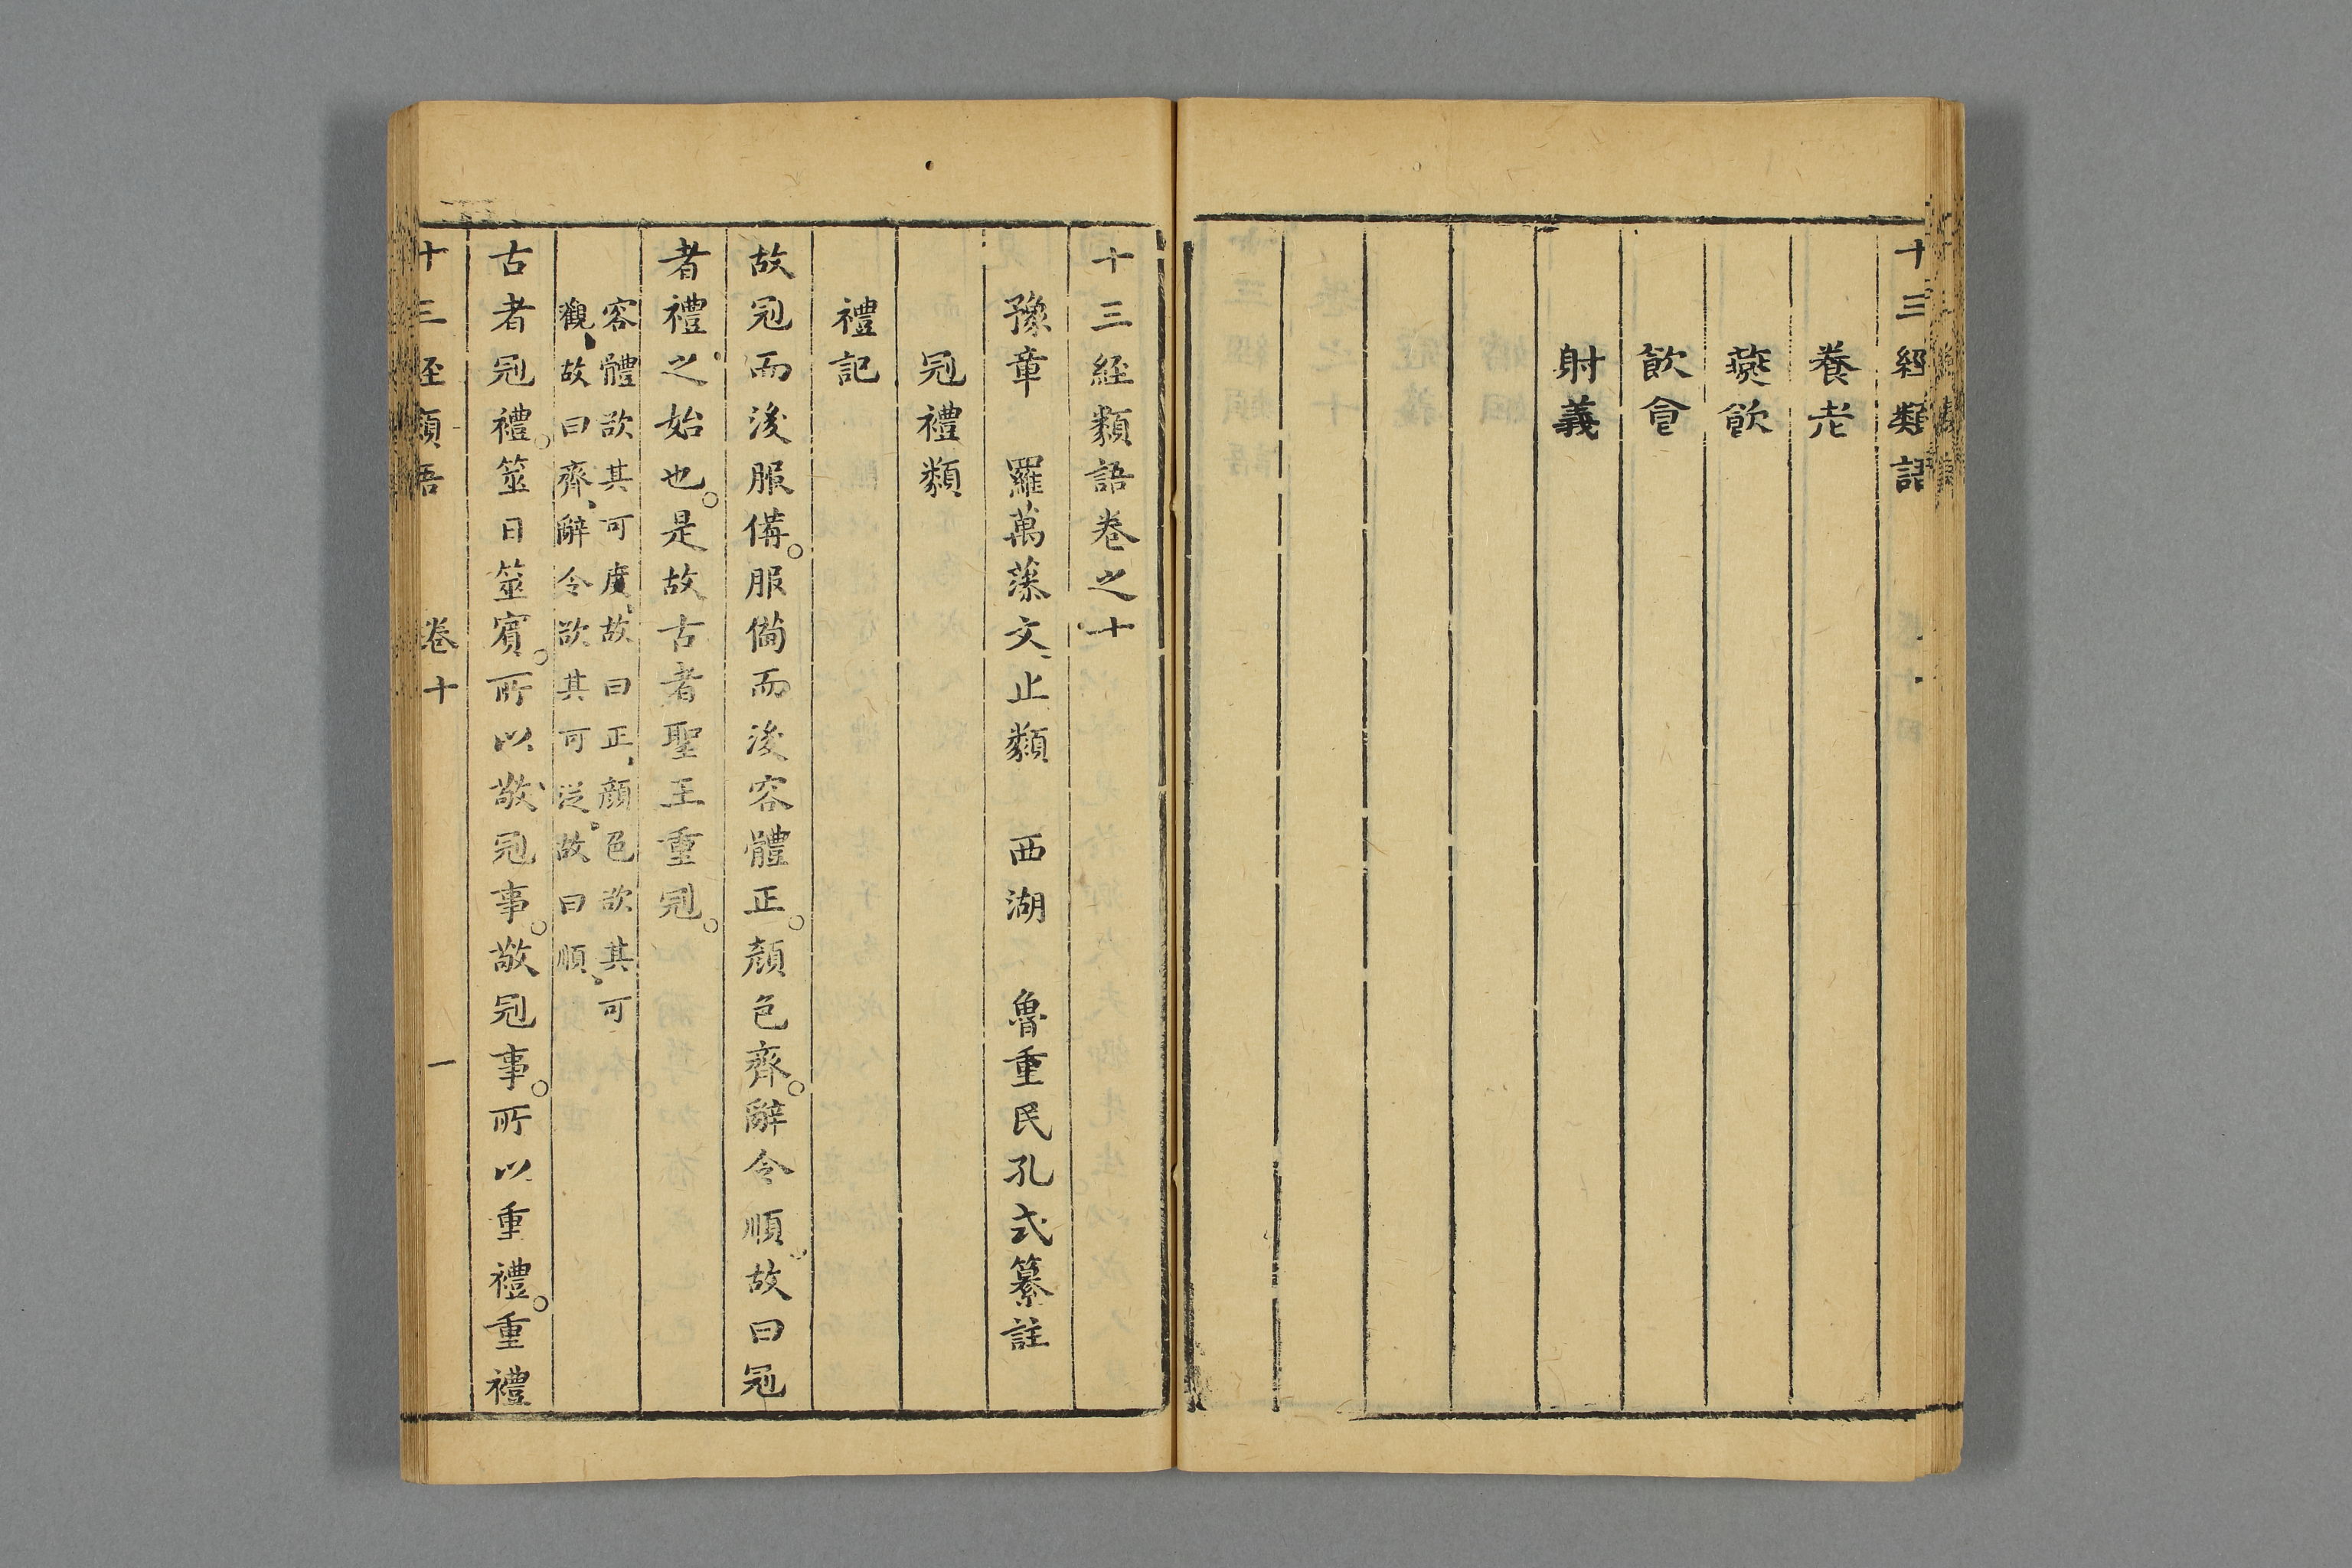 十三經類語
養老
燕飲
飲食
射義
十三経類語卷之十
豫章　羅萬藻文止類　西湖　魯重民孔式纂註
冠禮類
禮記
故冠而後服備○服備而後容體正○顔色齊○辭令順故曰冠
者禮之始也○是故古者聖王重冠○
容體欲其可度故曰正顔色欲其可
觀故曰齊辭令欲其可從故曰順
古者冠禮○筮日筮賓○所以敬冠事○敬冠事○所以重禮○重禮
十三經類語　卷十　一